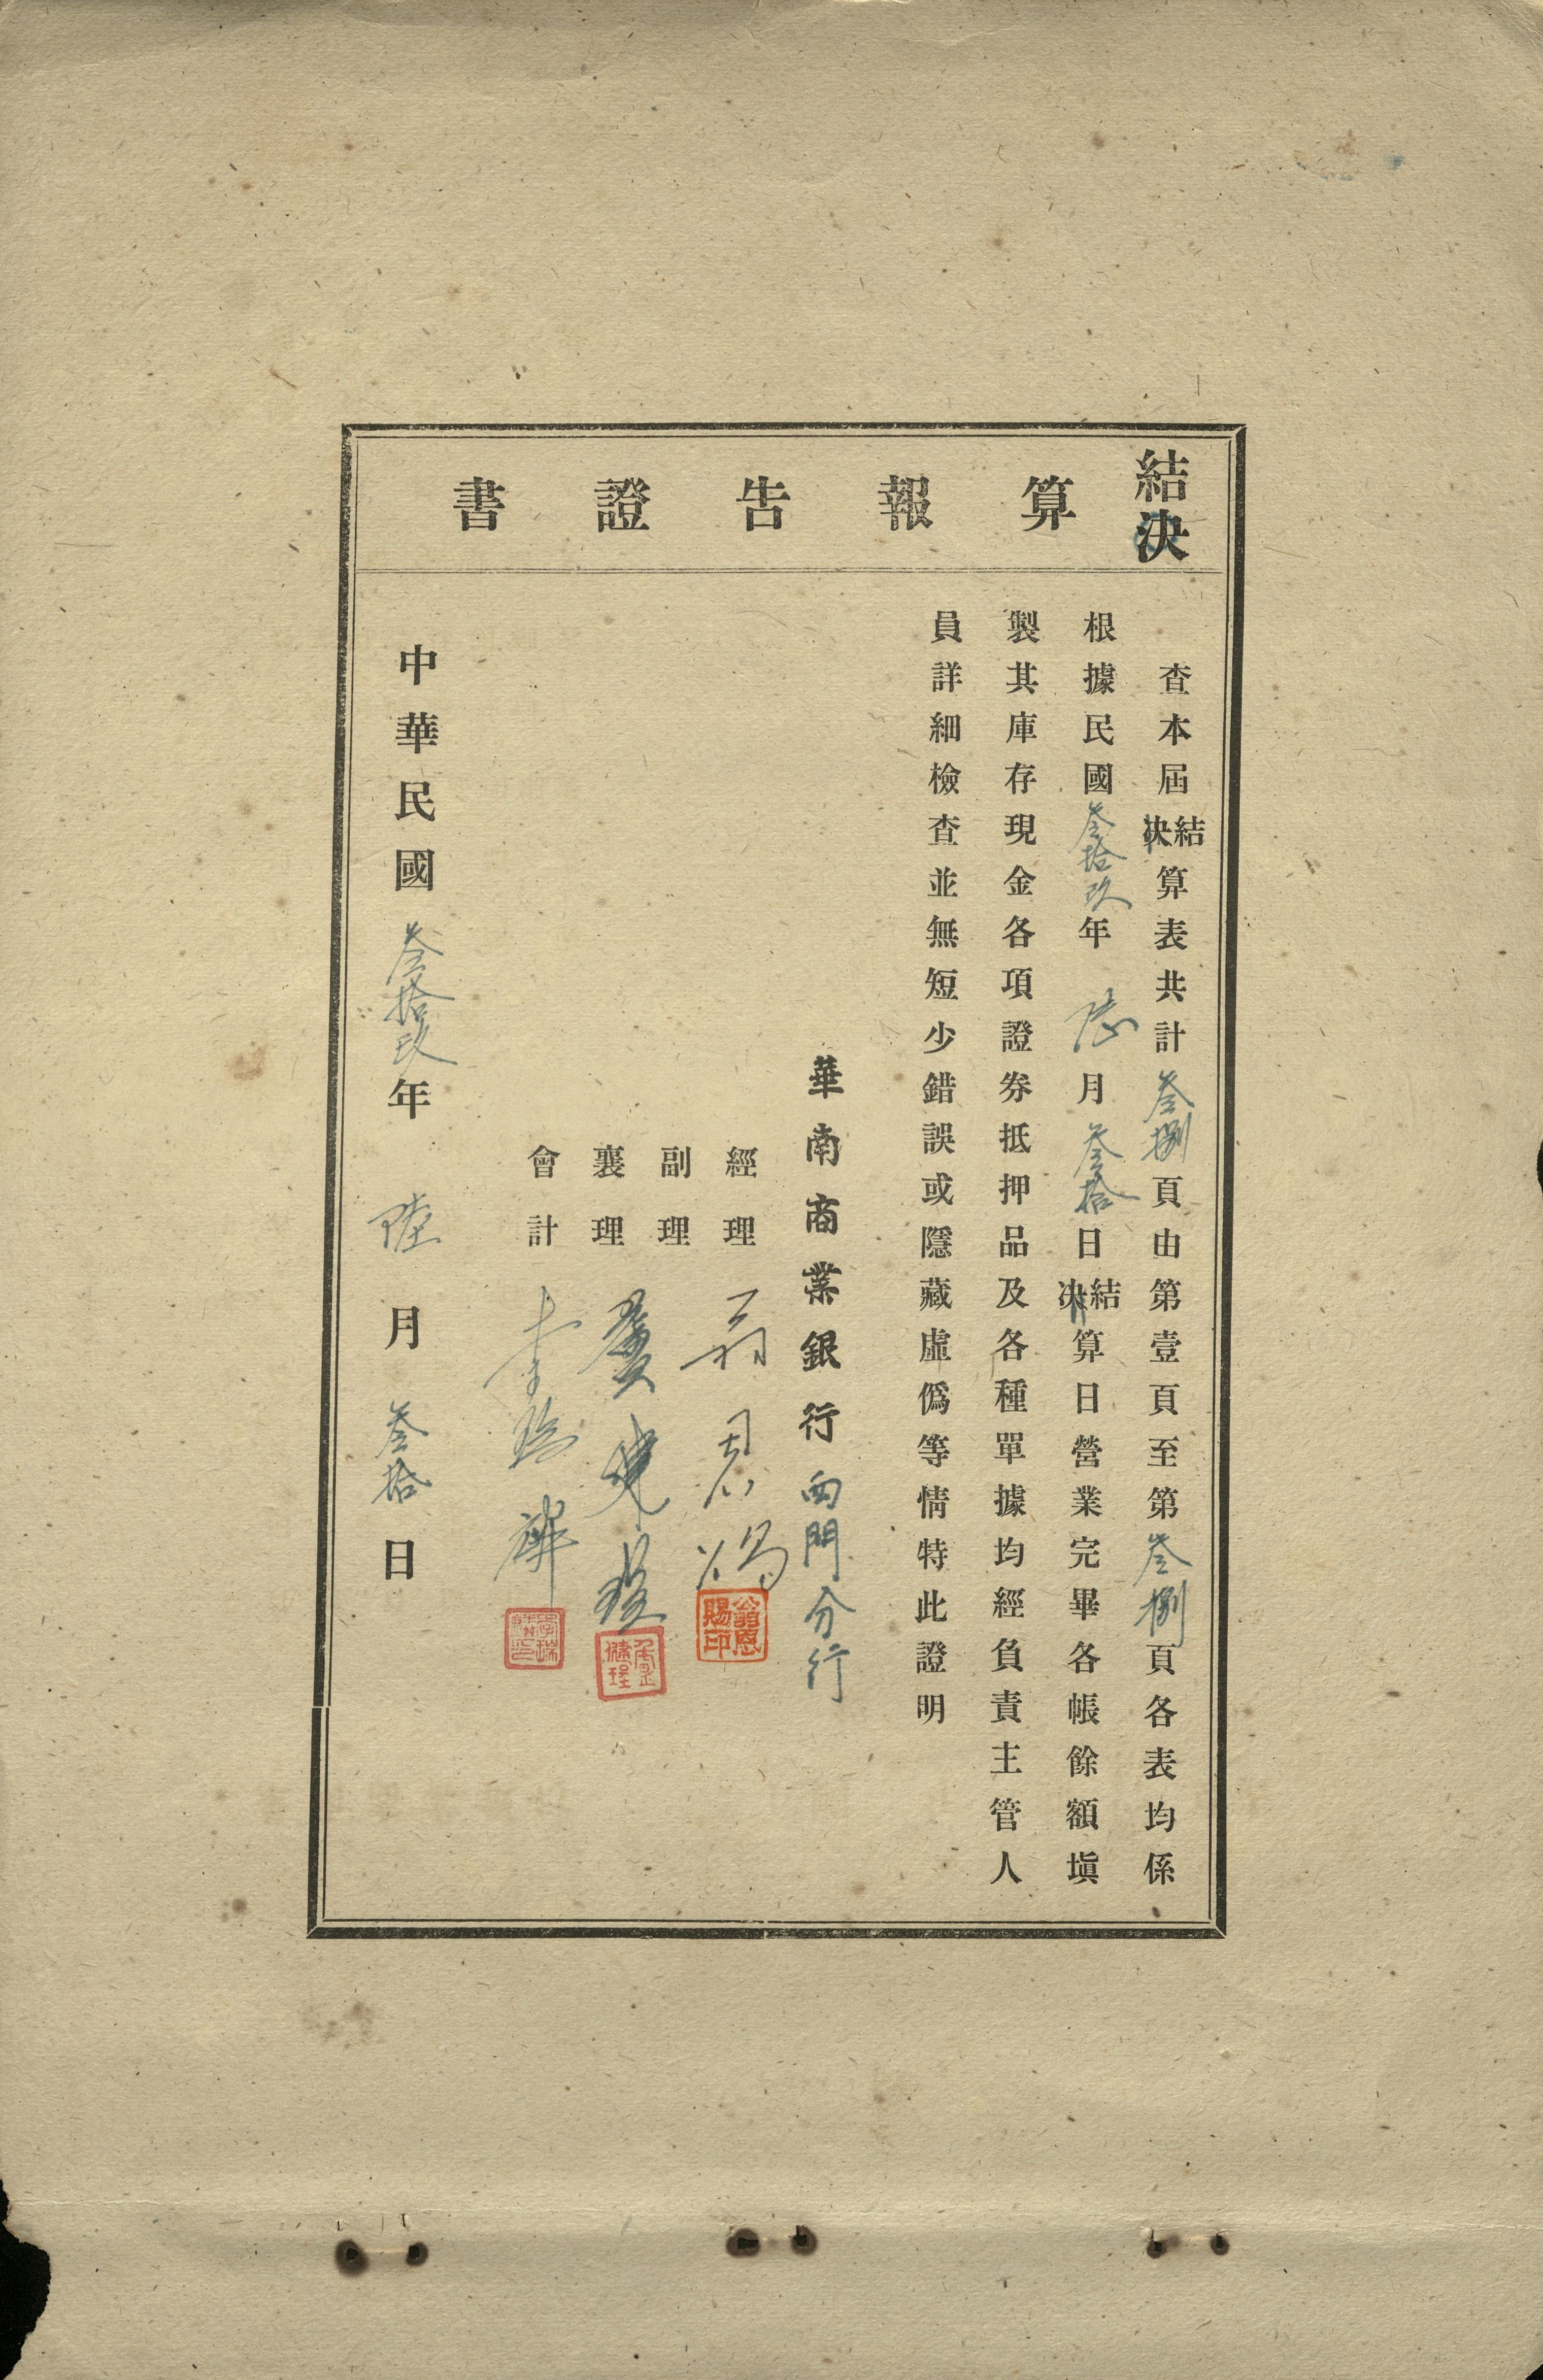 結決算報告證書
查本屆結決算表共計叁捌頁由第壹頁至第叁捌頁各表均係
根據民國叁拾玖年陸月叁拾日結決算日營業完畢各帳餘額塡
製其庫存現金各項證券抵押品及各種單據均經負責主管人
員詳細檢查並無短少錯誤或隱藏虛僞等情特此證明
華南商業銀行西門分行
經理 翁恩賜
翁恩賜印
副理
襄理
會計 李瑞
中華民國叁拾玖年陸月叁拾日